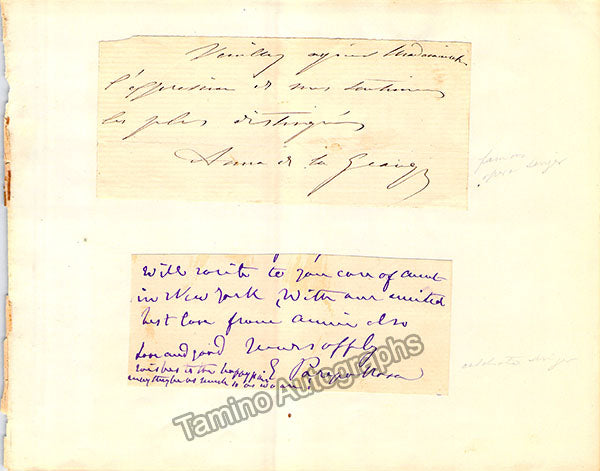 Veuillez agréer Mademoiselle
l'expression de mes sentiments
les plus distingués
Anna de la Grange
famous
opera singer
will write to you care of aunt
in New York With our united
best love from annie also
love and good yours affly
wishes to the happy pair E Parepa Rosa
may they be as much so as we are!
celebrated singer
Tamino Autographs